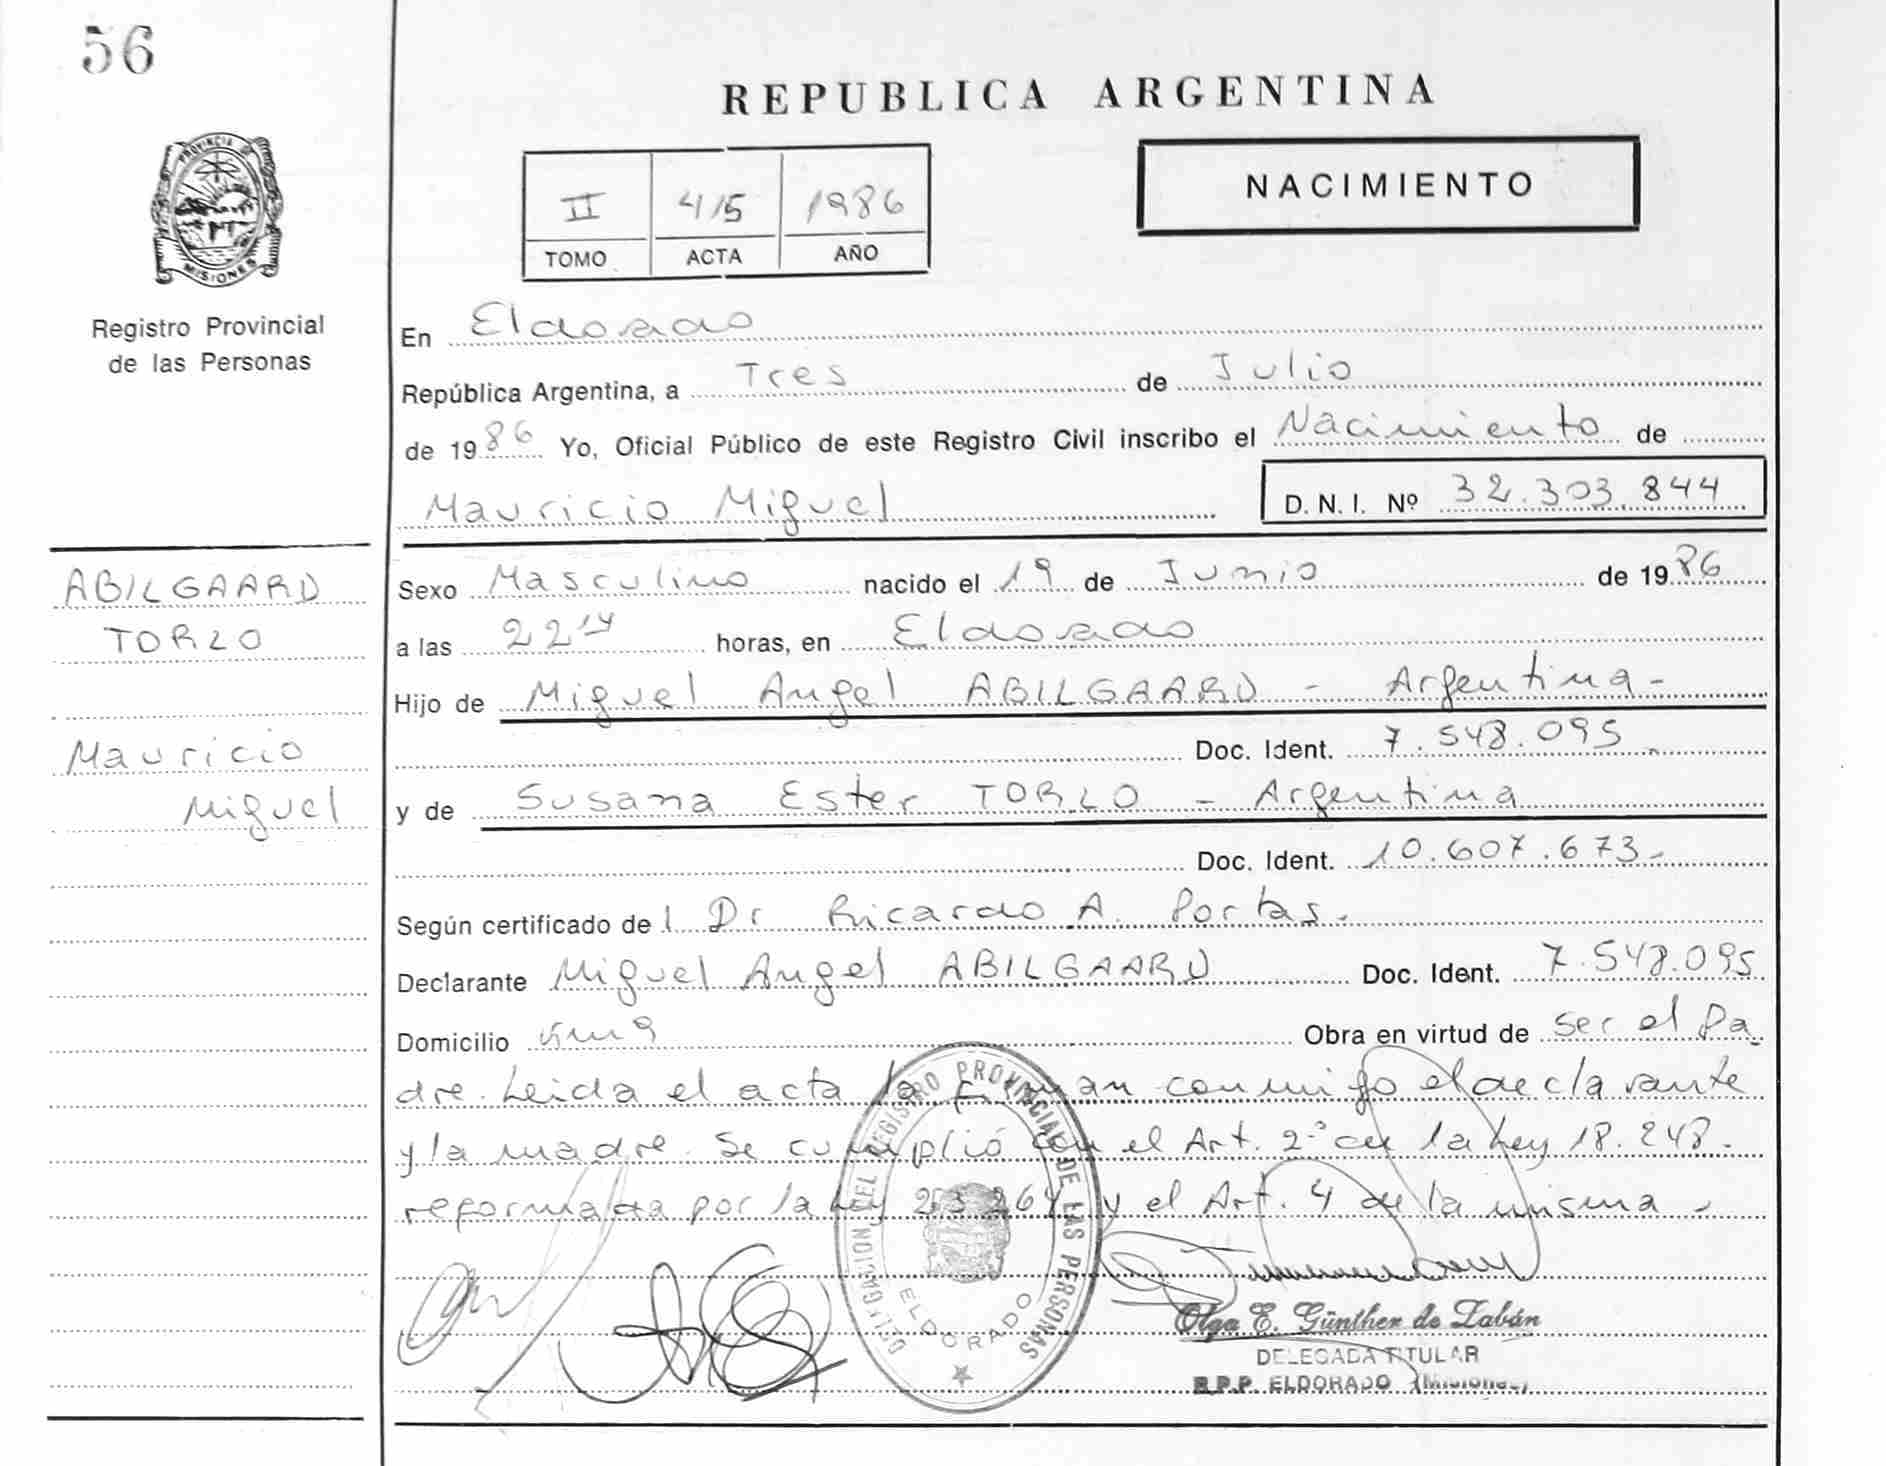 56
REPUBLICA ARGENTINA
PROVINCIA DE MISIONES
Registro Provincial
de las Personas
II 415 1986
TOMO ACTA AÑO
NACIMIENTO
En Eldorado
República Argentina, a Tres de Julio
de 1986 Yo, Oficial Público de este Registro Civil inscribo el Nacimiento de
Mauricio Miguel D. N. I. Nº 32.303.844
ABILGAARD
TORLO
Mauricio
Miguel
Sexo Masculino nacido el 19 de Junio de 1986
a las 22 14 horas, en Eldorado
Hijo de Miguel Angel ABILGAARD - Argentina -
Doc. Ident. 7.548.095
y de Susana Ester TORLO - Argentina
Doc. Ident. 10.607.673.
Según certificado de l Dr Ricardo A. Portas.
Declarante Miguel Angel ABILGAARD Doc. Ident. 7.548.095
Domicilio km 9 Obra en virtud de ser el Pa
dre. Leida el acta la firman conmigo el declarante
y la madre. Se cumplió con el Art. 2º de la Ley 18.248.
reformada por la Ley 23.264 y el Art. 4 de la misma -
DELEGACION DEL REGISTRO PROVINCIAL DE LAS PERSONAS
ELDORADO
Olga E. Günther de Zabán
DELEGADA TITULAR
R.P.P. ELDORADO (Misiones)